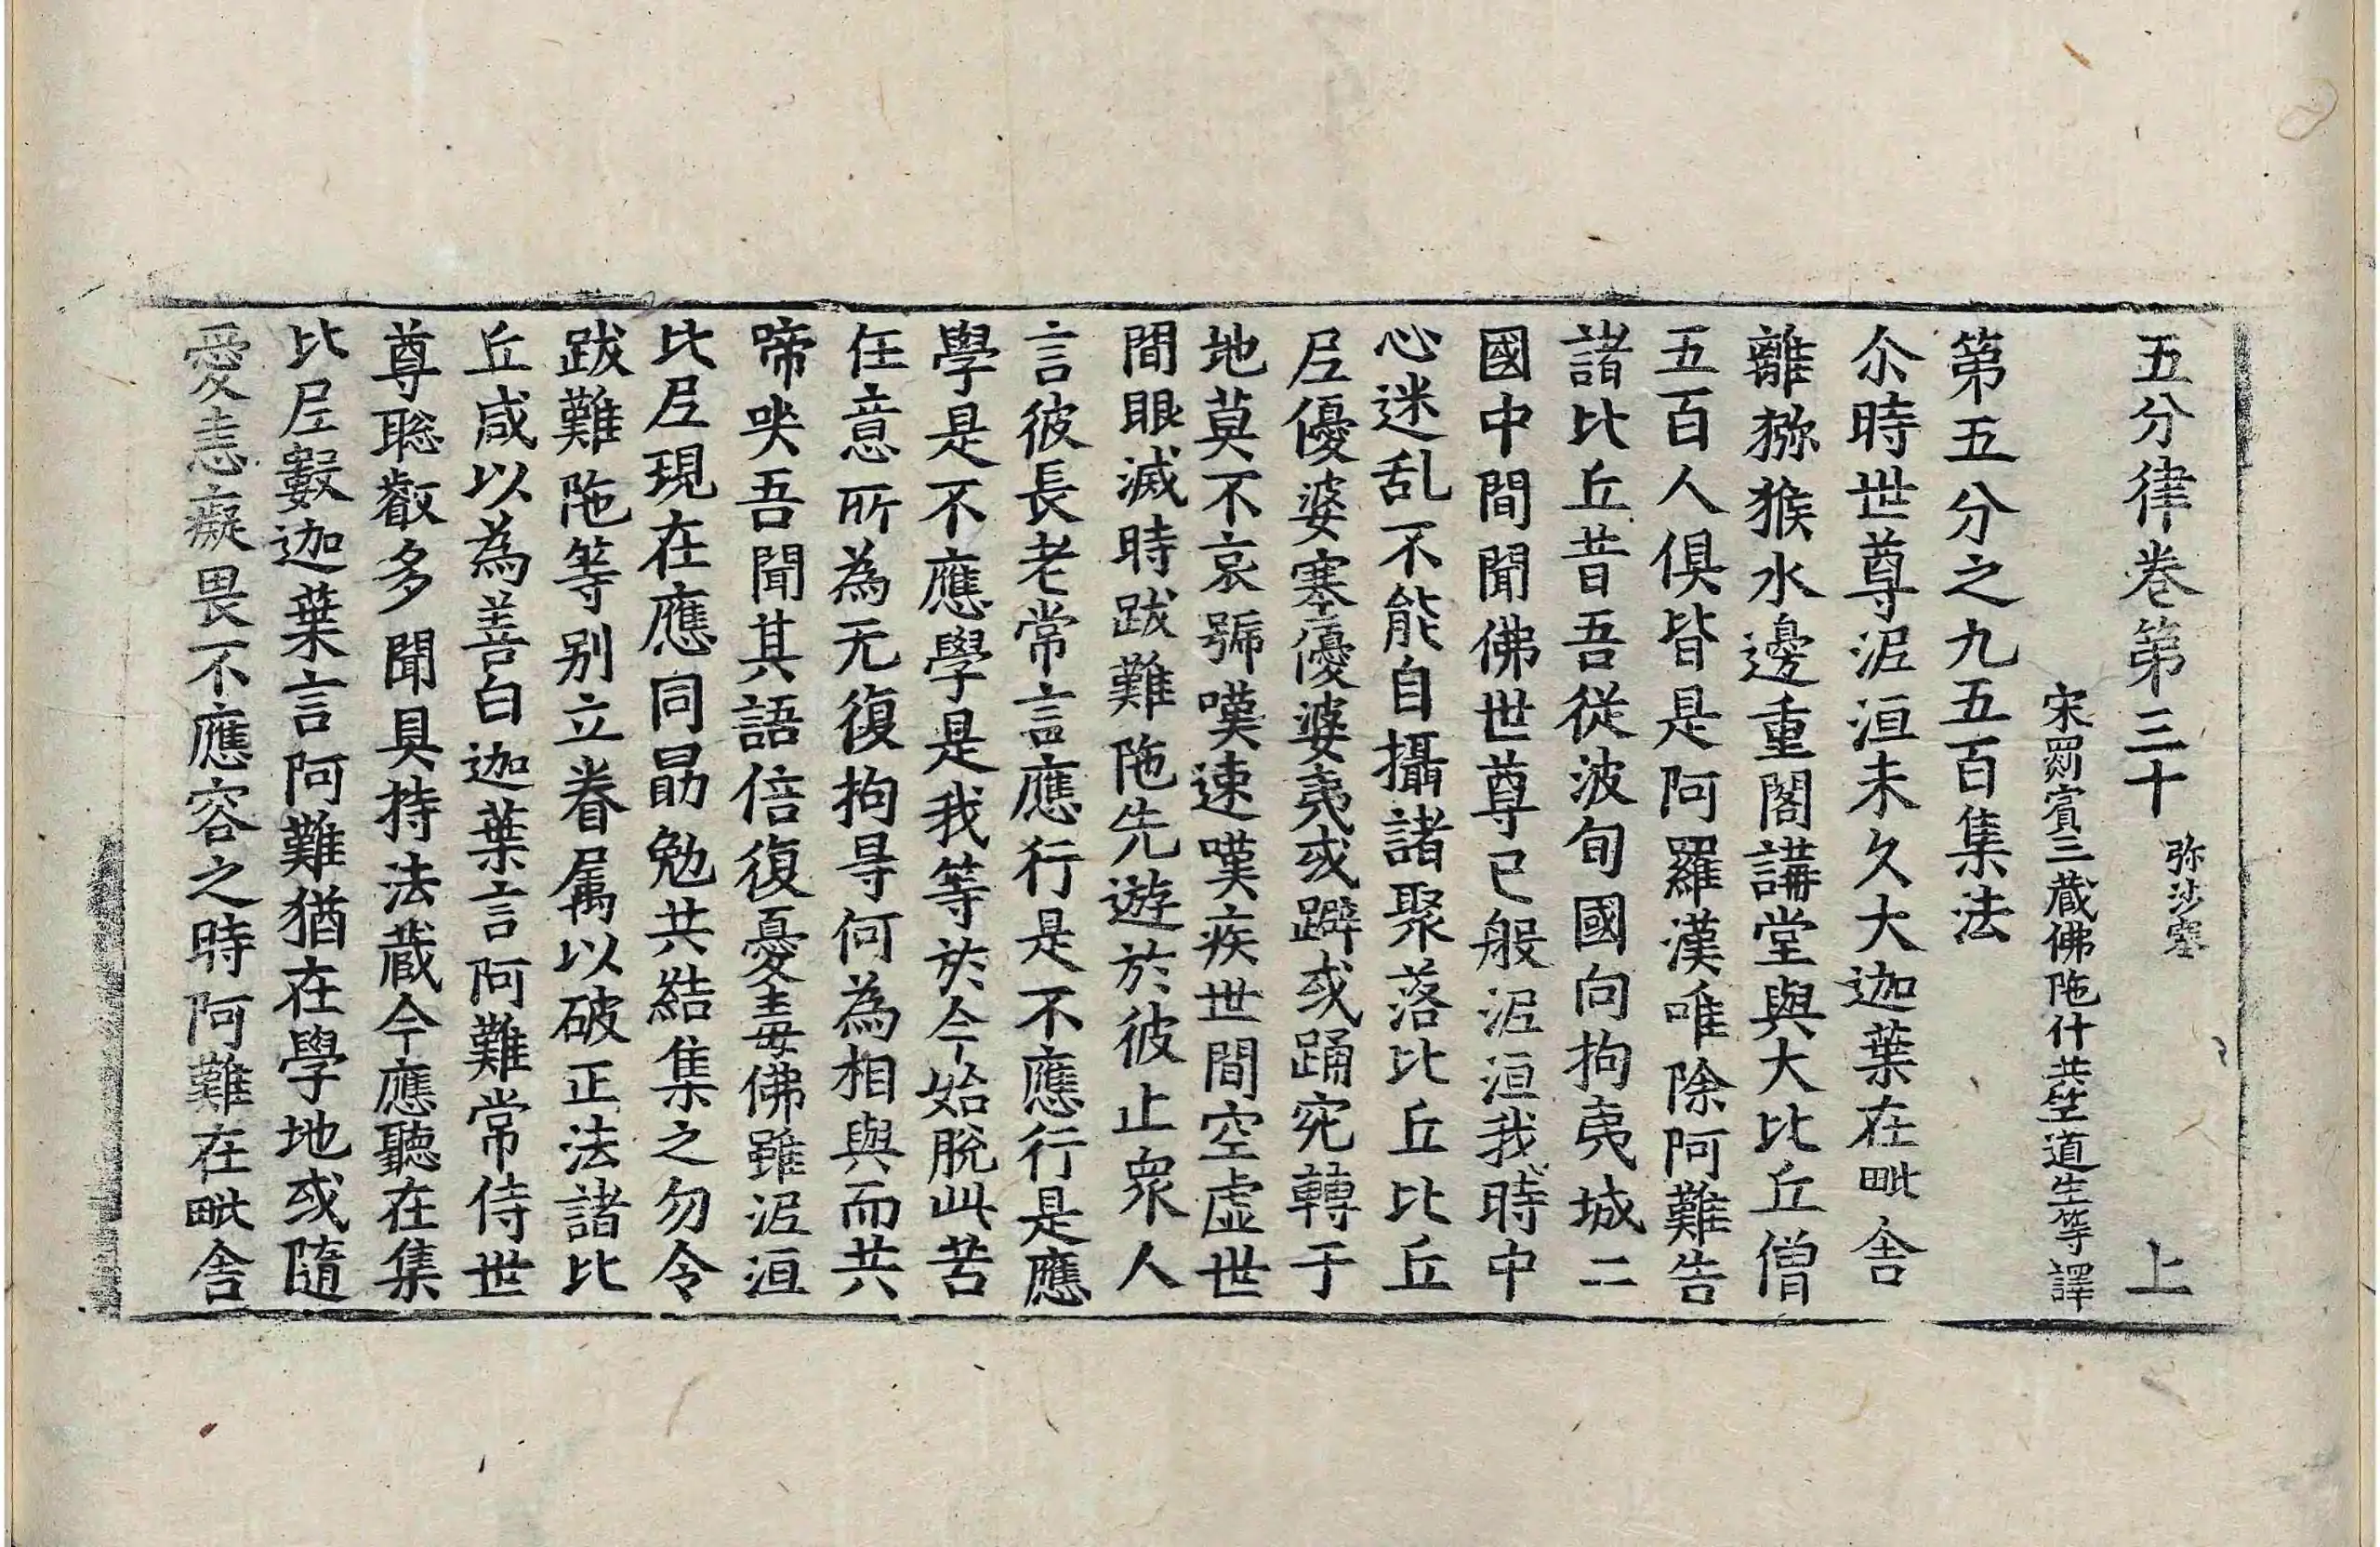 五分律卷第三十 弥沙塞 上
宋罽賓三藏佛陁什共竺道生等譯
第五分之九五百集法
尒時世尊泥洹未久大迦葉在毗舍
離獼猴水邊重閣講堂與大比丘僧
五百人俱皆是阿羅漢唯除阿難告
諸比丘昔吾從波旬國向拘夷城二
國中間聞佛世尊已般泥洹我時中
心迷乱不能自攝諸聚落比丘比丘
尼優婆塞優婆夷或躃或踊宛轉于
地莫不哀號嘆速嘆疾世間空虛世
間眼滅時跋難陁先遊於彼止衆人
言彼長老常言應行是不應行是應
學是不應學是我等於今始脫此苦
任意所為无復拘㝵何為相與而共
啼哭吾聞其語倍復憂毒佛雖泥洹
比尼現在應同勗勉共結集之勿令
跋難陁等別立眷属以破正法諸比
丘咸以為善白迦葉言阿難常侍世
尊聡叡多聞具持法藏今應聽在集
比尼數迦葉言阿難猶在學地或隨
愛恚癡畏不應容之時阿難在毗舍